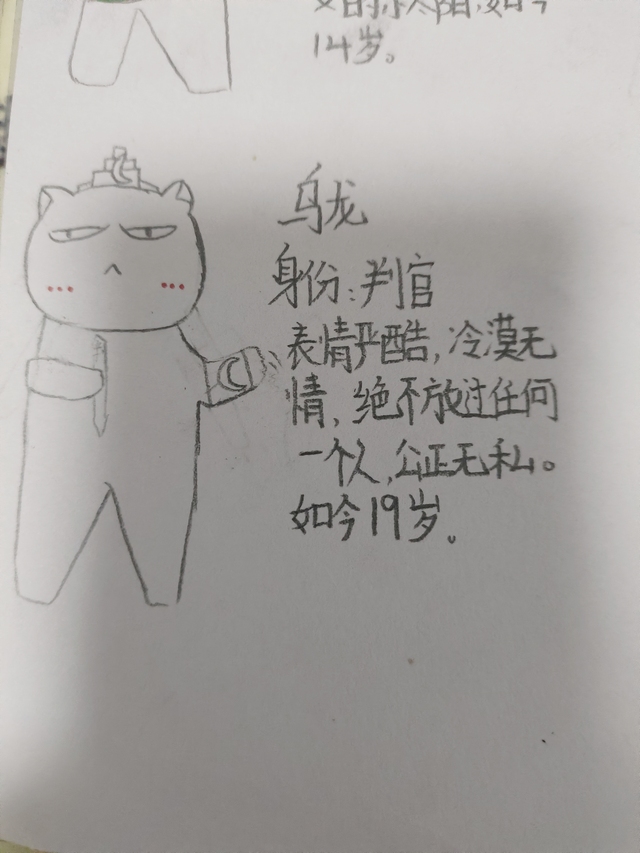 的小太阳,如今
14岁。
乌龙
身份:判官
表情严酷,冷漠无
情,绝不放过任何
一个人,公正无私。
如今19岁。